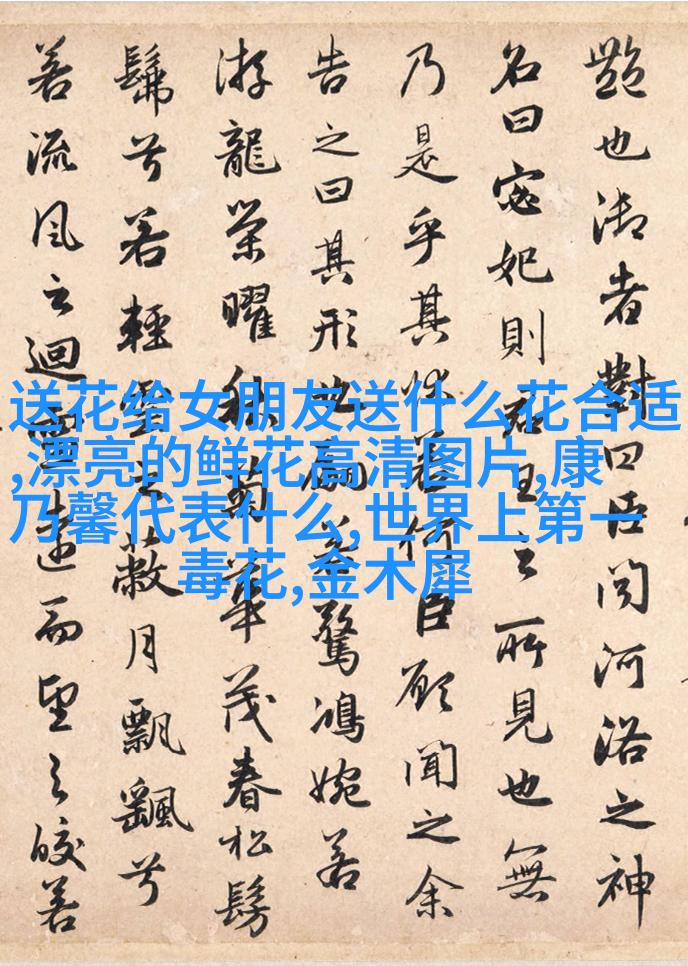 艷也御者對曰臣聞河洛之神
名曰宓妃則君王之所見也無
乃是乎其狀若何臣願聞之余
告之曰其形也翩若驚鴻婉若
游龍榮曜秋菊華茂春松髣
髴兮若輕雲之蔽月飄颻兮
若流風之迴雪遠而望之皎若
送花给女朋友送什么花合适
,漂亮的鲜花高清图片,康
乃馨代表什么,世界上第一
毒花,金木犀